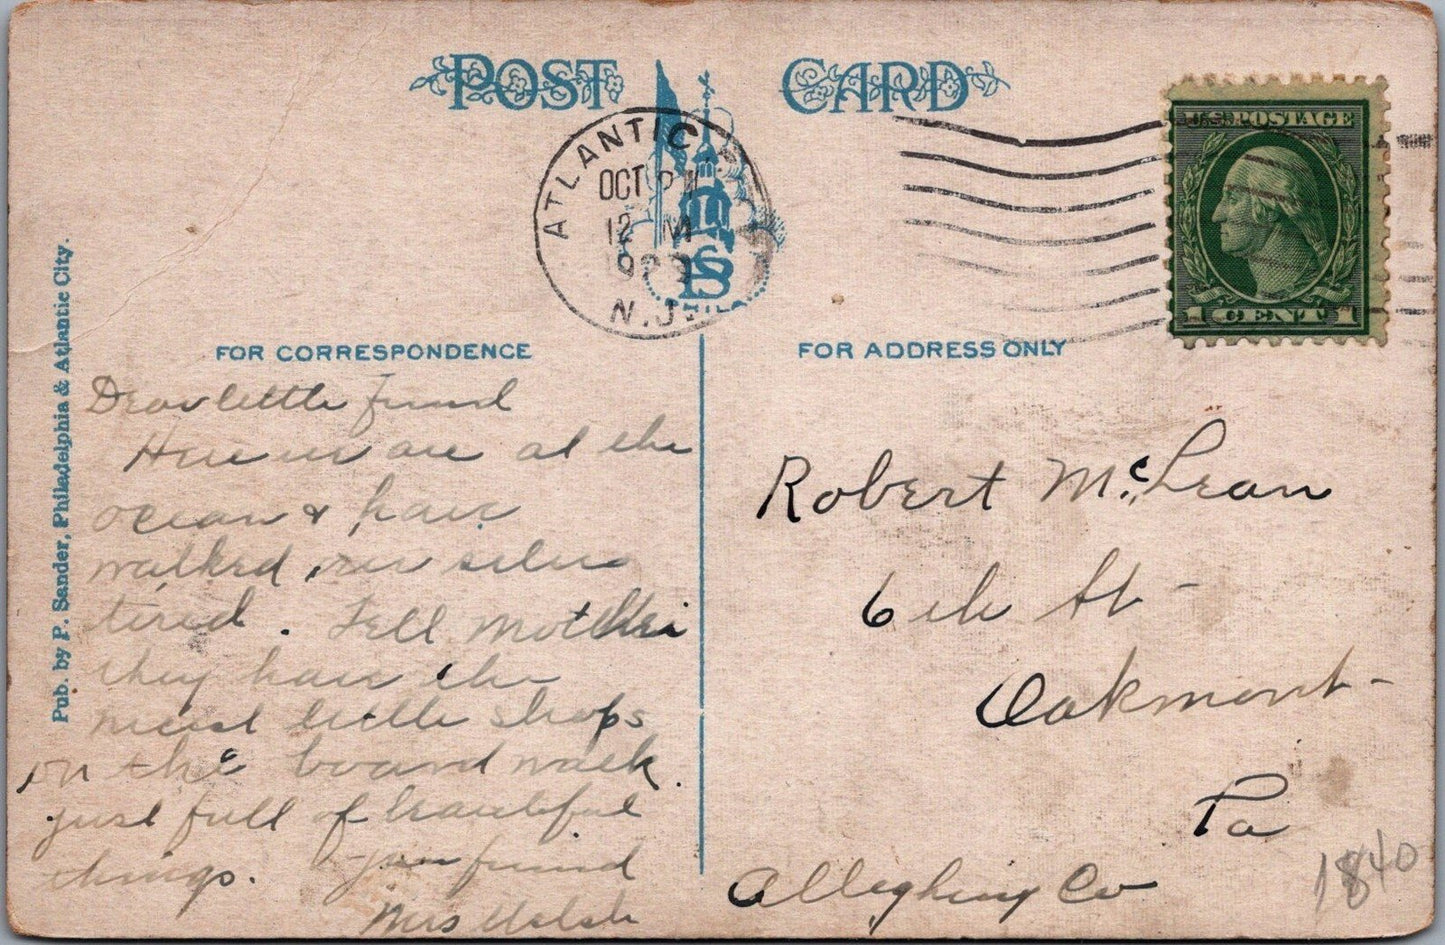 POST CARD
ATLANTIC
OCT
12 M
19
N.J.
U.S. POSTAGE
1 CENT 1
PS
PHILA
FOR CORRESPONDENCE
FOR ADDRESS ONLY
Pub. by P. Sander, Philadelphia & Atlantic City.
Dear little friend
Here we are at the
ocean & have
walked our selves
tired. Tell Mother
they have the
nicest little shops
on the board walk.
just full of beautiful
things. your friend
Mrs Walsh
Robert McLean
6 th St -
Oakmont -
Pa
Allegheny Co
1840